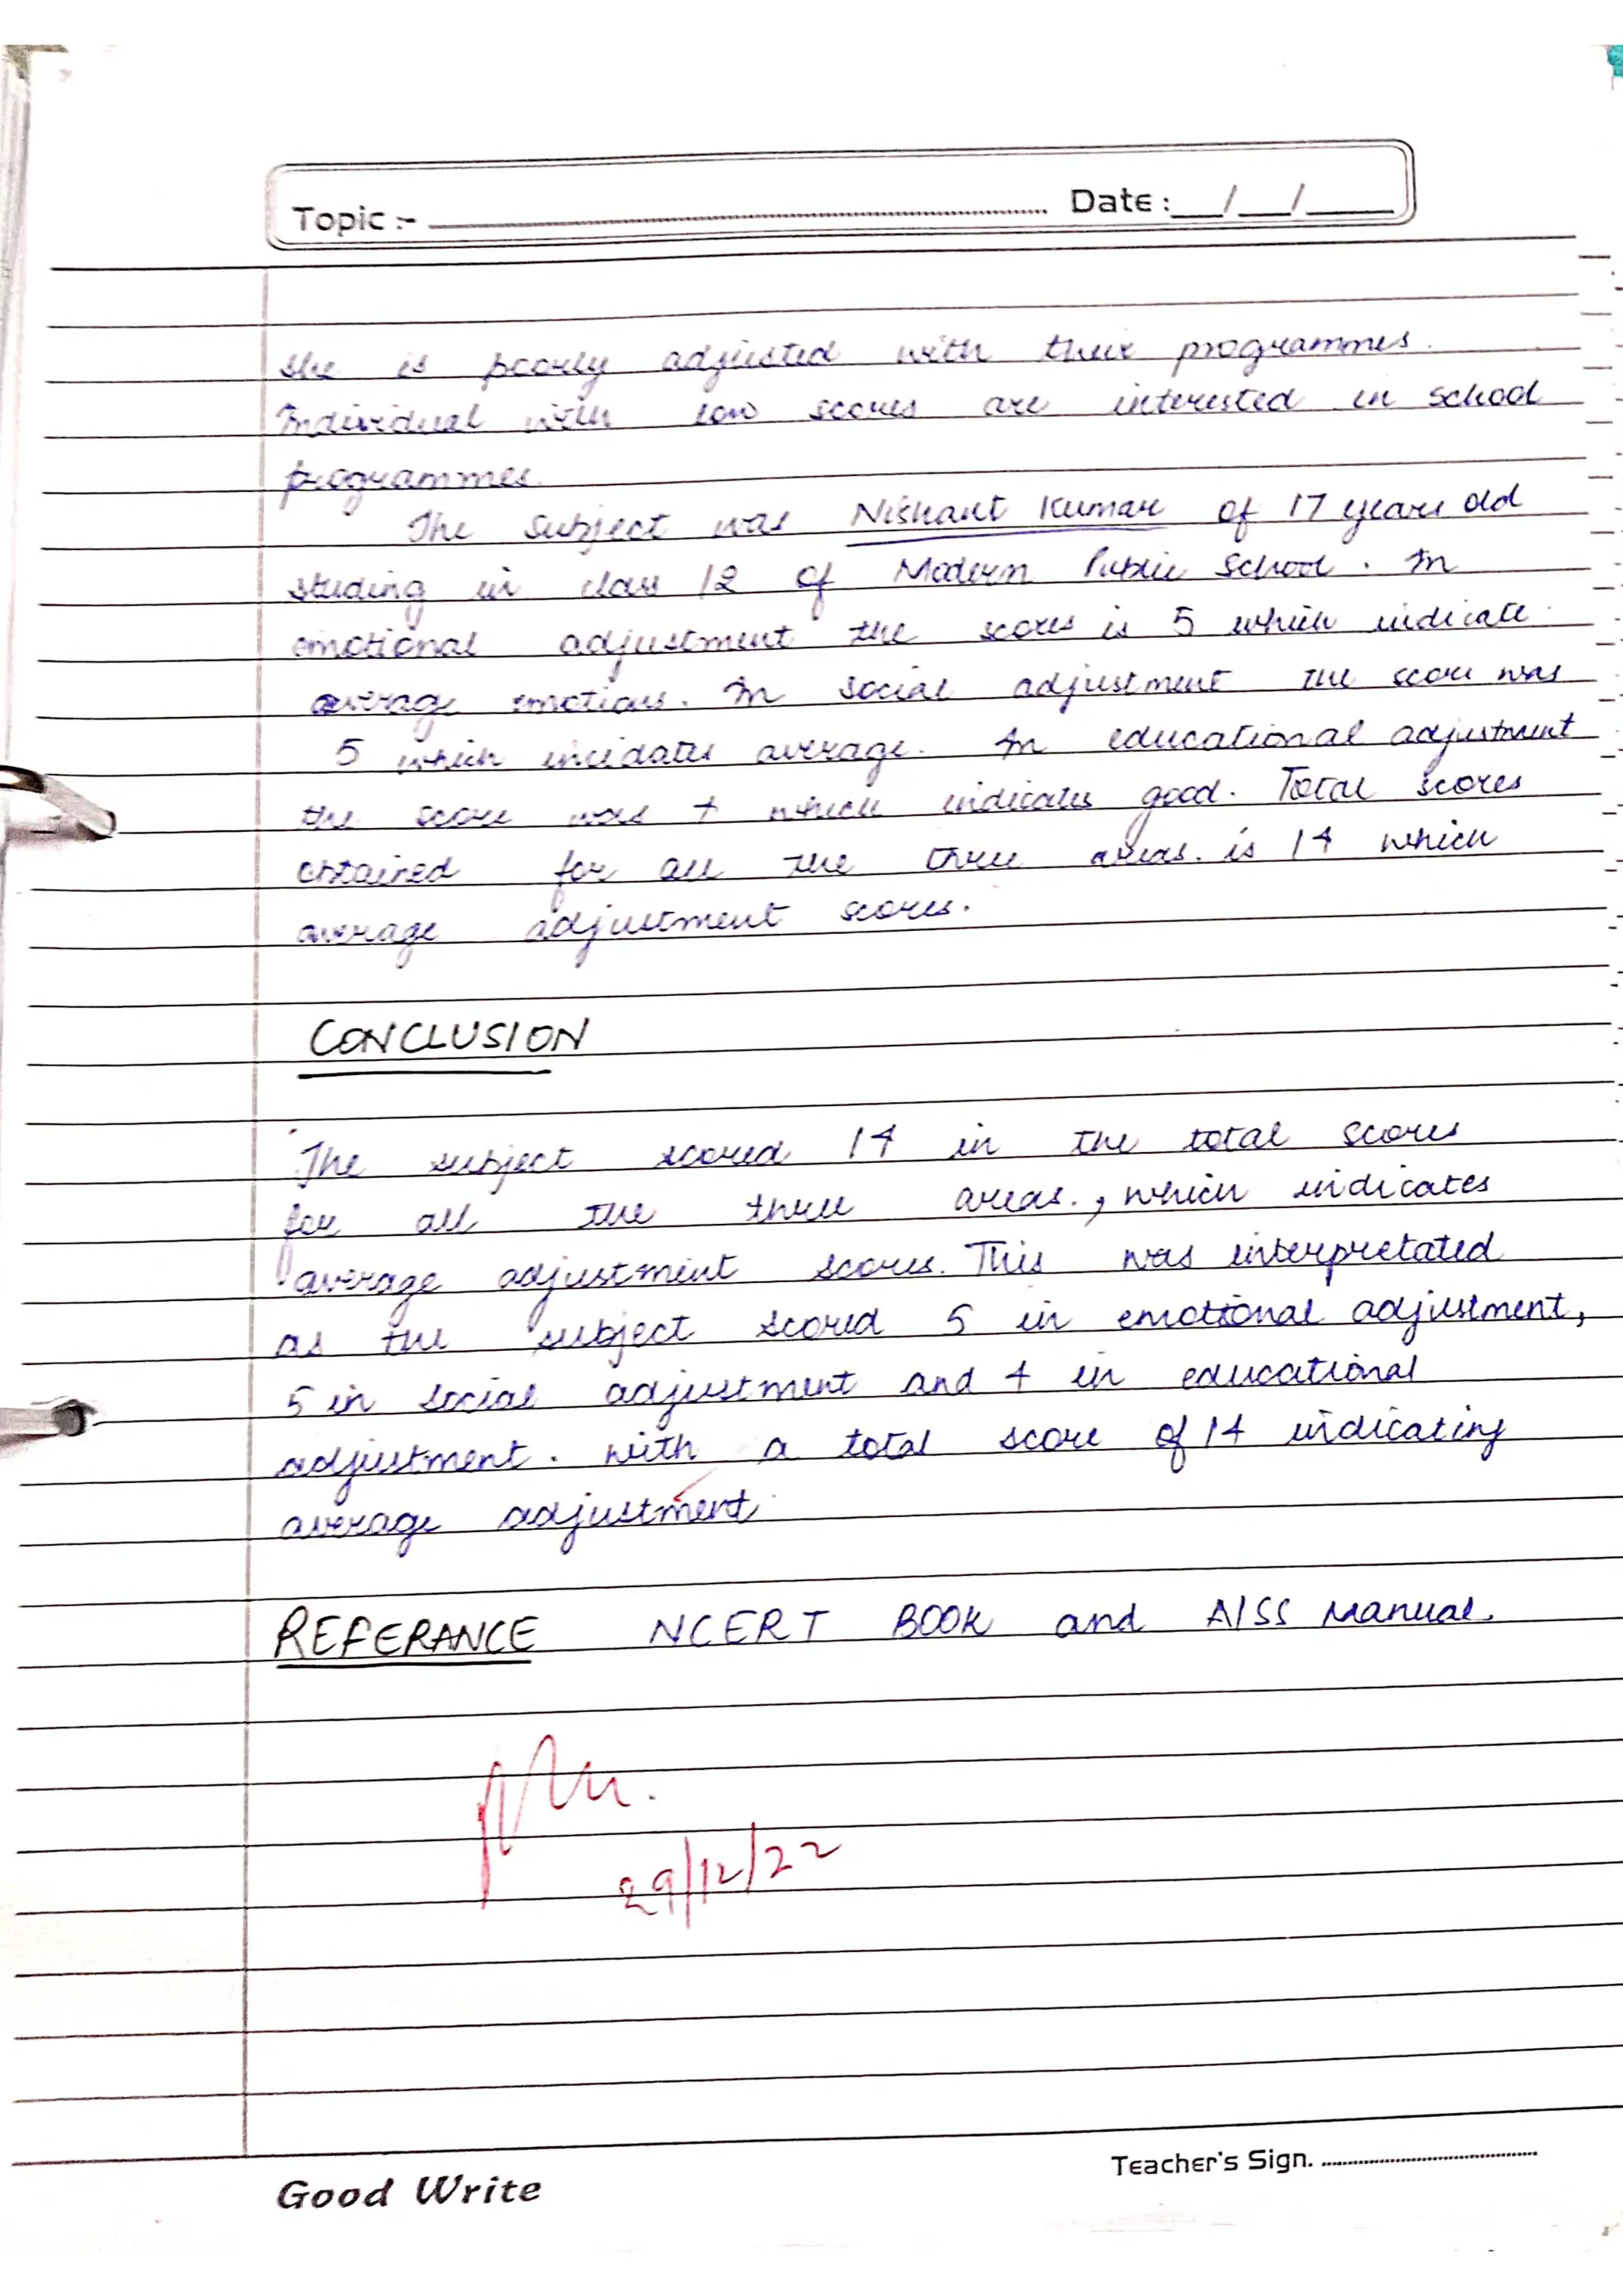 Topic :- Date : __/__/____
she is poorly adjusted with their programmes.
Individual with low scores are interested in school
programmes.
The subject was Nishant Kumar of 17 years old
studing in class 12 of Modern Public School. In
emotional adjustment the scores is 5 which indicate
average emotions. In social adjustment the score was
5 which incidates average. In educational adjustment
the score was 4 which indicates good. Total scores
obtained for all the three areas. is 14 which
average adjustment scores.
CONCLUSION
The subject scored 14 in the total scores
for all the three areas., which indicates
average adjustment scores. This was interpretated
as the subject scored 5 in emotional adjustment,
5 in social adjustment and 4 in educational
adjustment. with a total score of 14 indicating
average adjustment.
REFERANCE NCERT BOOK and AISS Manual.
29/12/22
Teacher's Sign.
Good Write